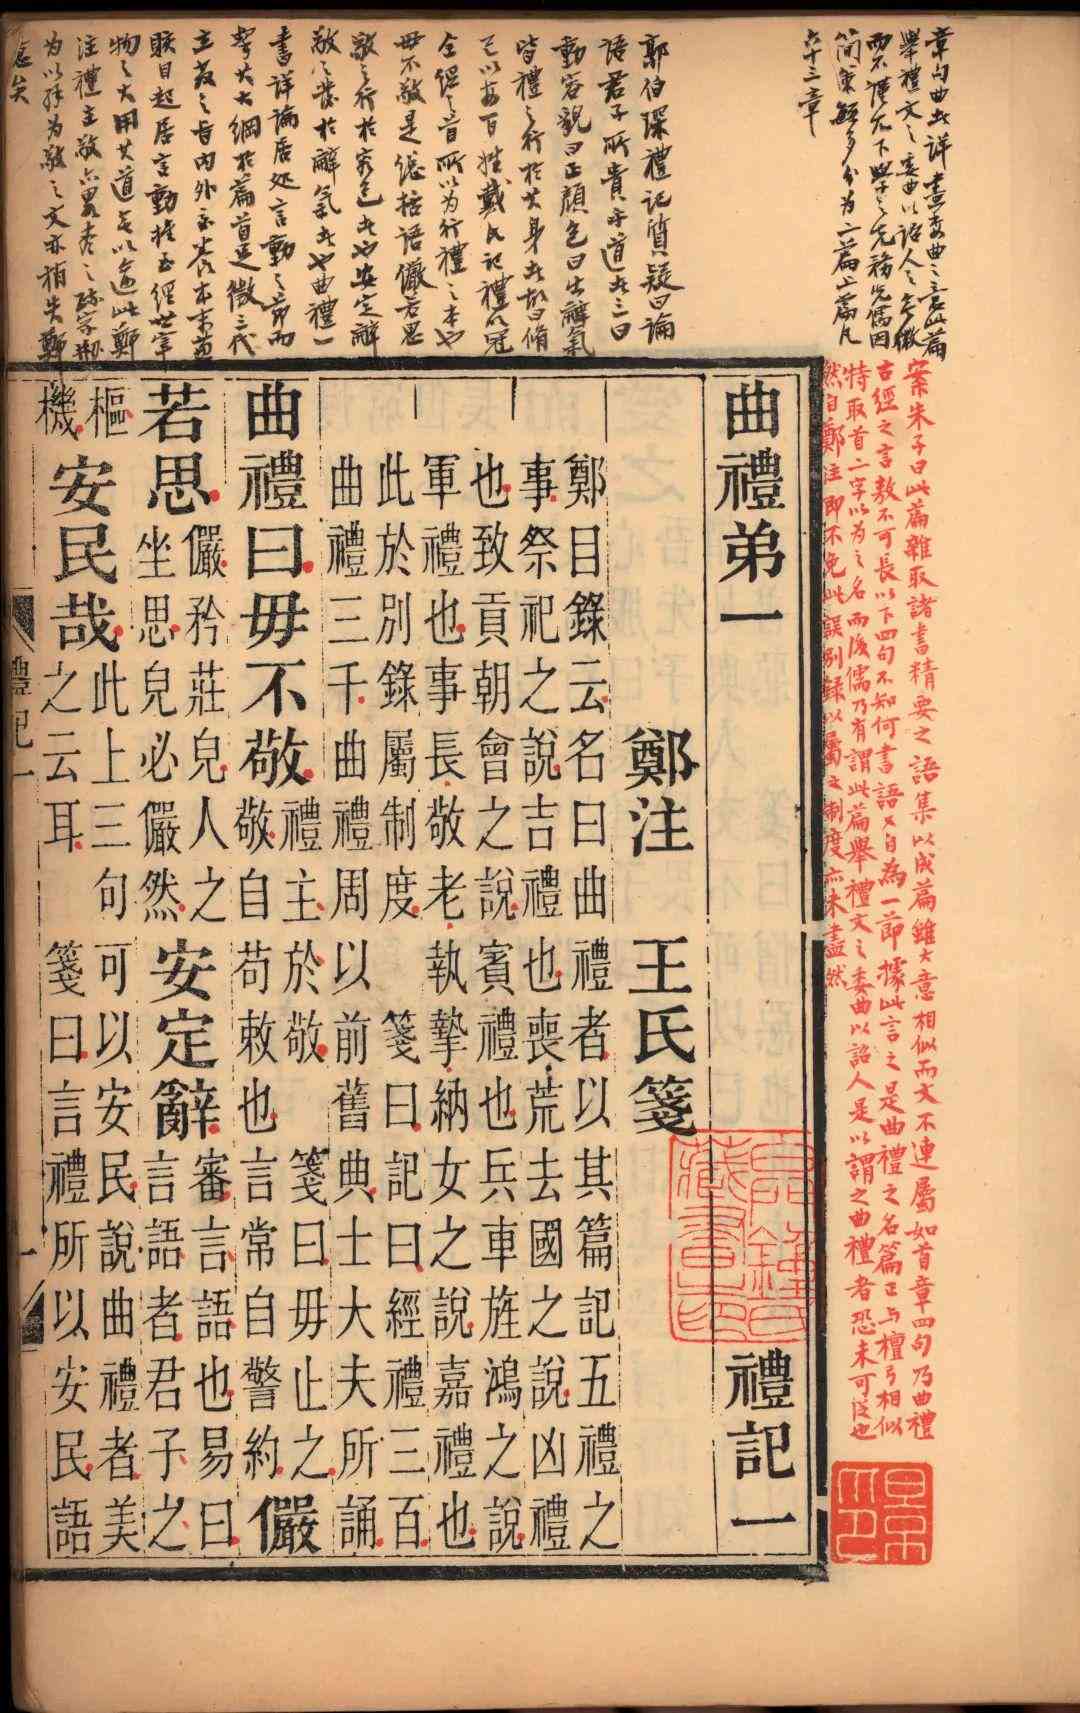 章句曲者詳盡委曲之意此篇
舉禮文之委曲以詔人之微
而不謹尤下學之先務先儒因
簡策繁多分為二篇上篇凡
六十三章
郭伯琛禮記質疑曰論
語君子所貴乎道者三曰
動容貌曰正顏色曰出辭氣
皆禮之行於其身者故曰脩
己以安百姓戴氏記禮以冠
全經之首所以為行禮之本也
毋不敬是總括語儼若思
敬之行於容色者也安定辭
敬之發於辭氣者也曲禮一
書詳論居处言動之節而
挈其大綱於篇首足徵三代
立教之旨內外交養本末兼
賅自起居言動推至經世宰
物之大用其道以此鄭
注禮主敬亦略之疏家
為以拜為敬之文亦稍失鄭
意矣
案朱子曰此篇雜取諸書精要之語集以成篇雖大意相似而文不連屬如首章四句乃曲禮
古經之言敖不可長以下四句不知何書語又自為一節據此言之是曲禮之名篇正与檀弓相似
特取首二字以為之名而後儒乃有謂此篇舉禮文之委曲以詔人是以謂之曲禮者恐未可從也
然自鄭注即不免此誤別錄以屬之制度亦未盡然
曲禮弟一 禮記一
鄭注 王氏箋
鄭目錄云名曰曲禮者以其篇記五禮之
事祭祀之說吉禮也喪荒去國之說凶禮
也致貢朝會之說賓禮也兵車旌鴻之說
軍禮也事長敬老執摯納女之說嘉禮也
此於別錄屬制度 箋曰記曰經禮三百
曲禮三千曲禮周以前舊典士大夫所誦
曲禮曰毋不敬 禮主於敬 箋曰毋止之
敬自苟敕也言常自警約 儼
若思 儼矜莊皃人之
坐思皃必儼然 安定辭 審言語也易曰
言語者君子之
樞
機 安民哉 此上三句可以安民說曲禮者美
之云耳 箋曰言禮所以安民語
禮記一
藏書之印